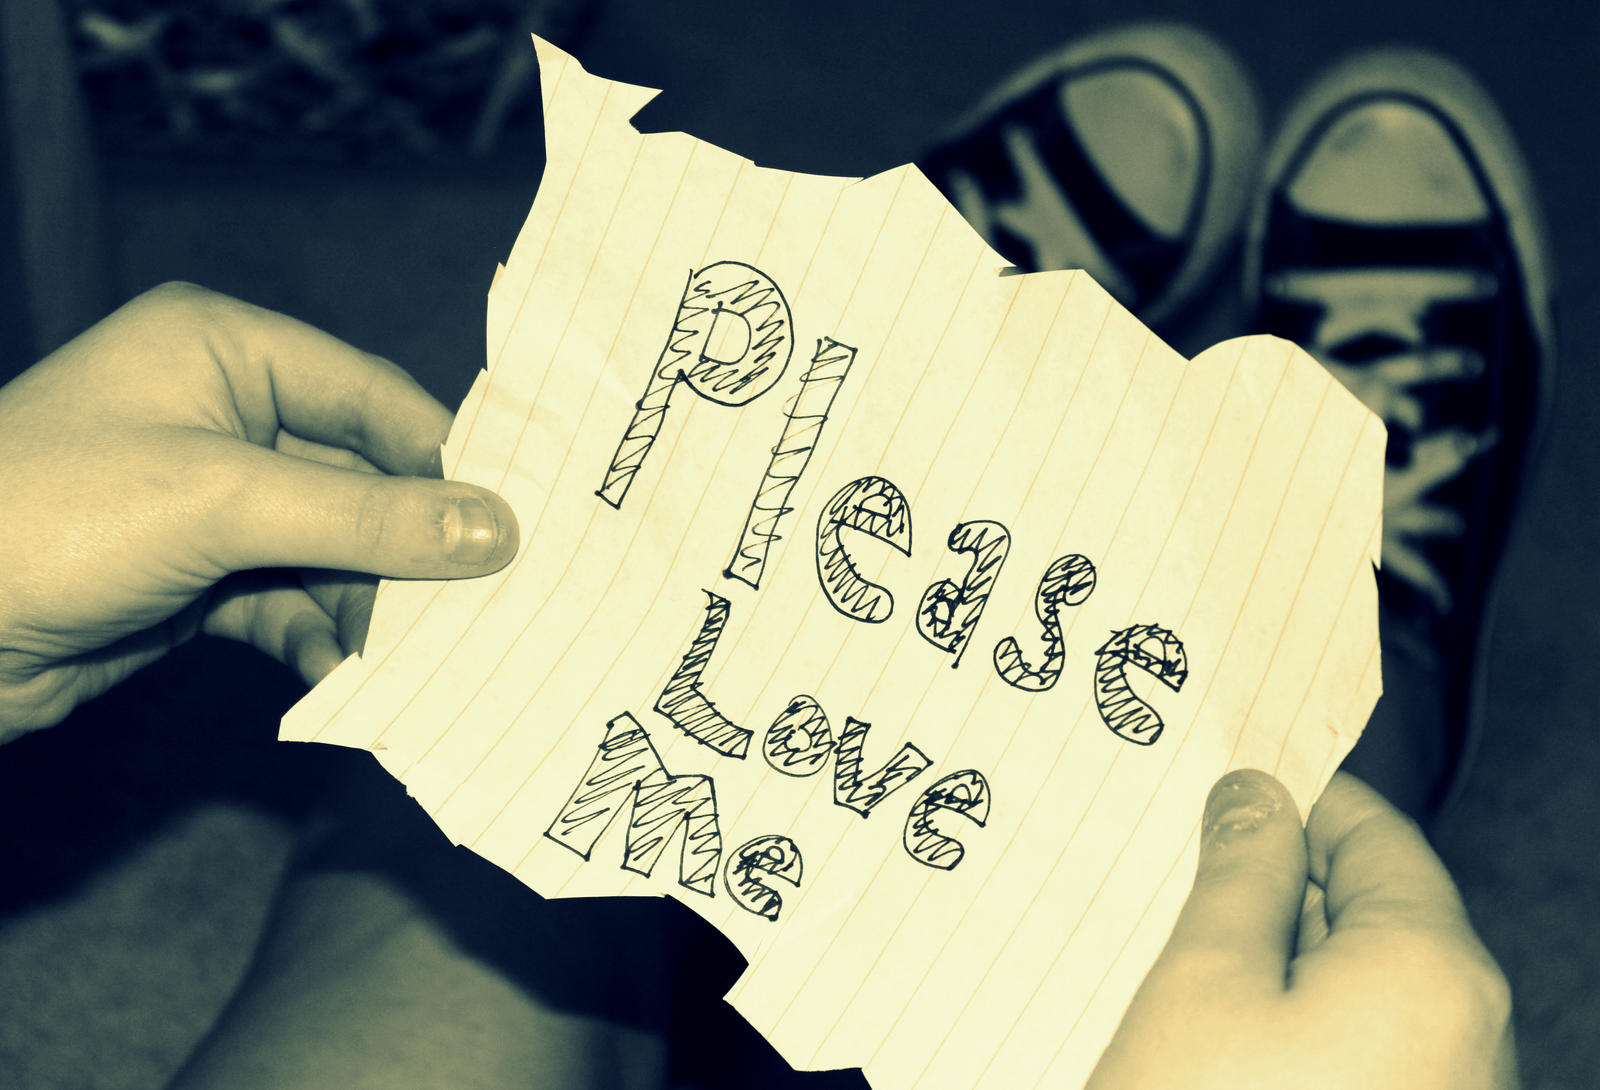 Please
Love
Me